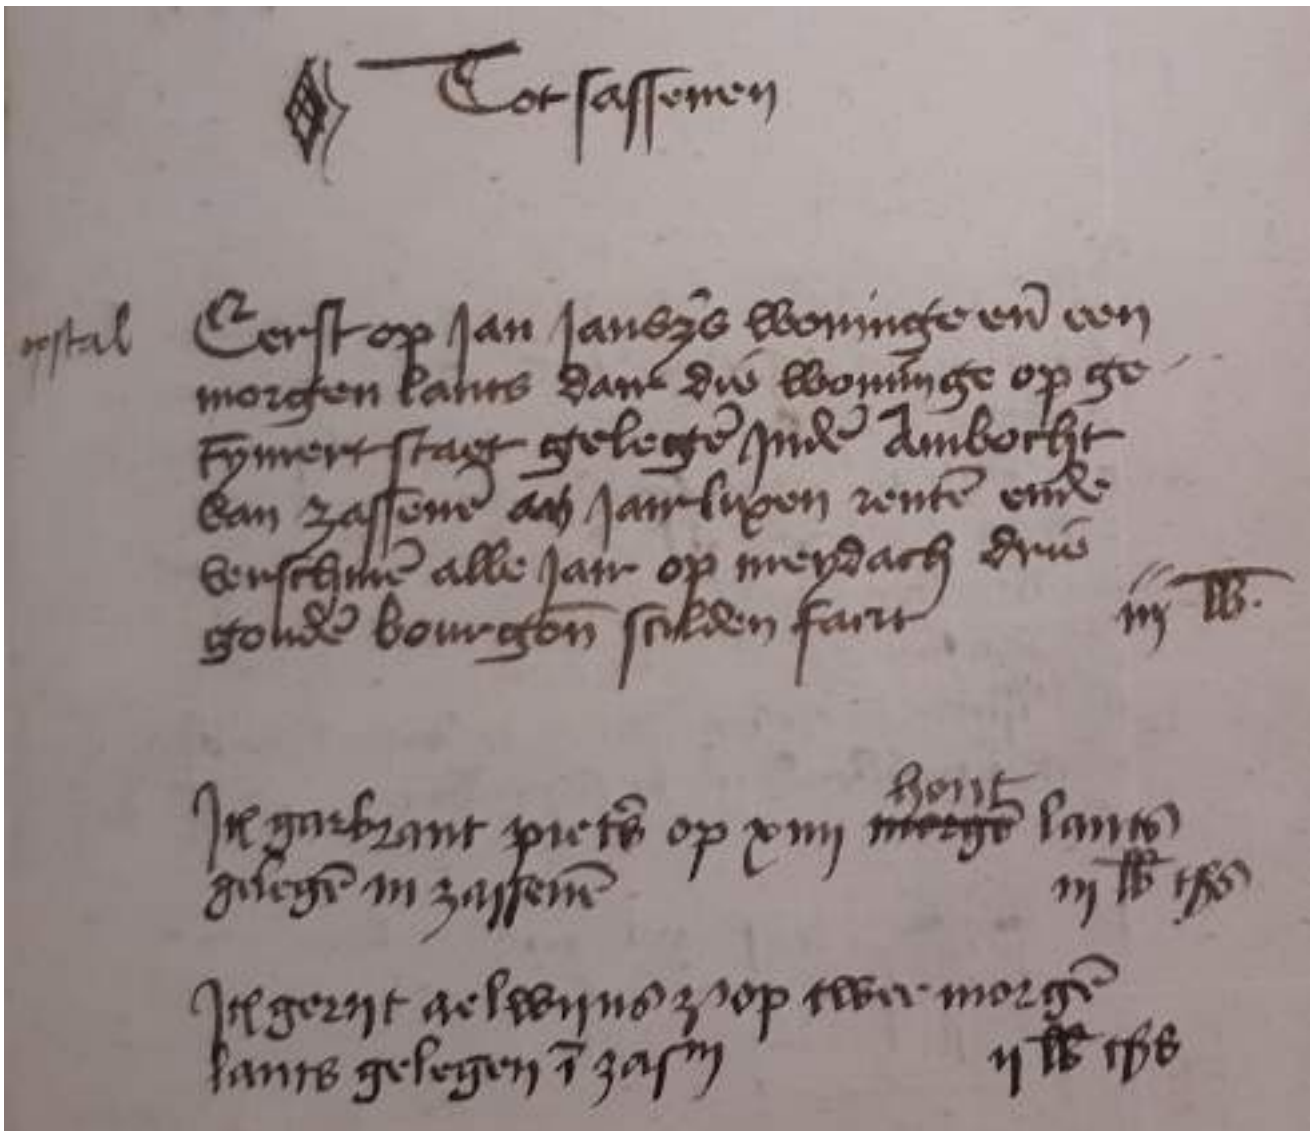 Tot sassenen
opstal
Eerst op Jan Jansz̄s woninge en̄ een
morgen lants dair die woninge op ge
tymert staet gelegē Jndē Ambocht
van zassenē aen Jairlixen rentē ende
verschinē alle Jair op meydach drie
goudē bourgon̄ scilden fact iij lb.
hont
Itē garbrant pietẽs op xiiij morgē lants
gelegē in zassenē iij lb tss
Itē gerijt aelwijns z op twee morgē
lants gelegen ī zasm ij lb tss